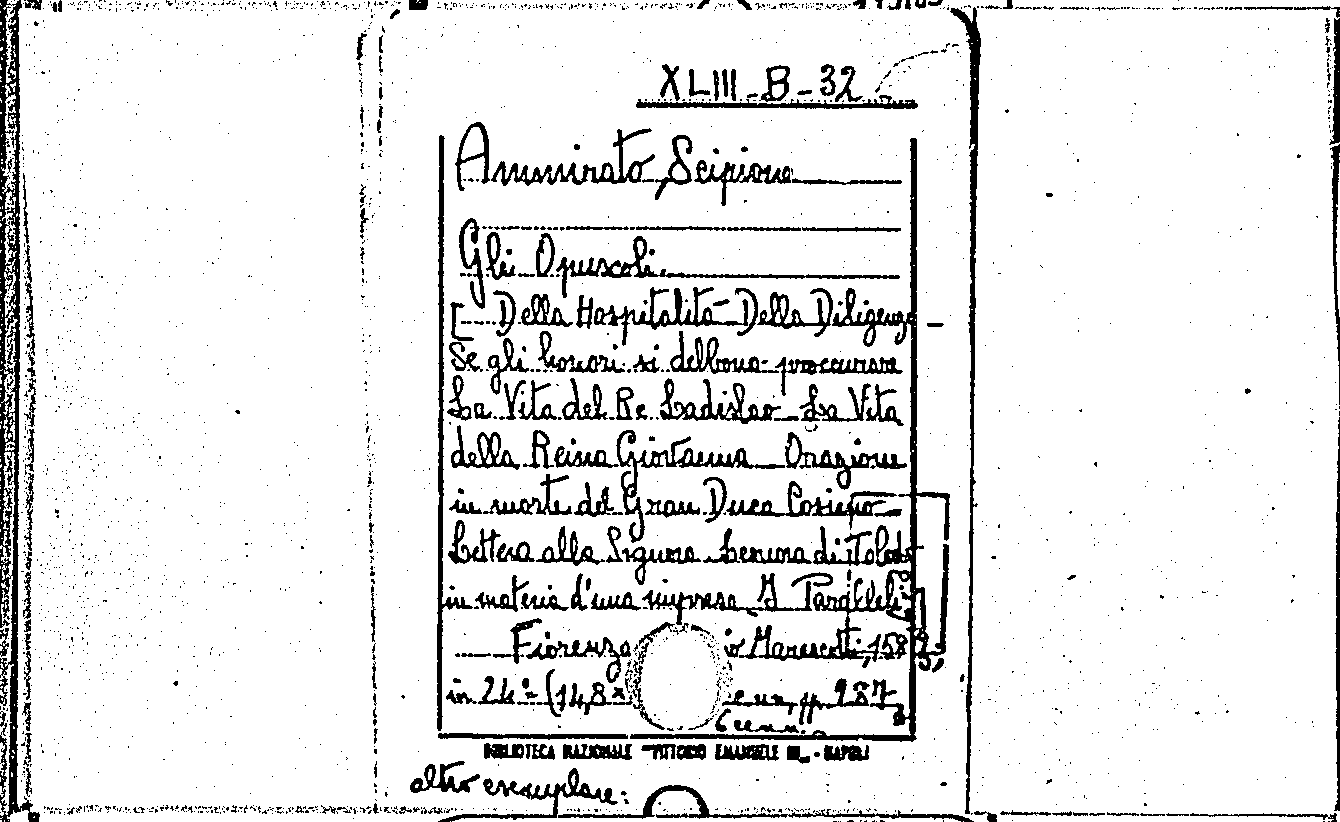 XLIII-B-32
Ammirato, Scipione
Gli Opuscoli.
[ Della Hospitalità - Della Diligenza -
Se gli honori si debbono procurare
La Vita del Re Ladislao - La Vita
della Reina Giovanna - Orazione
in morte del Gran Duca Cosimo -
Lettera alla Signora di Toledo
in materia d'una impresa - I Paralleli
Fiorenza Marescotti, 158
in 24° (14,8 x pp. 187,
6 cc. n. n.
BIBLIOTECA NAZIONALE "VITTORIO EMANUELE III" - NAPOLI
altro esemplare: